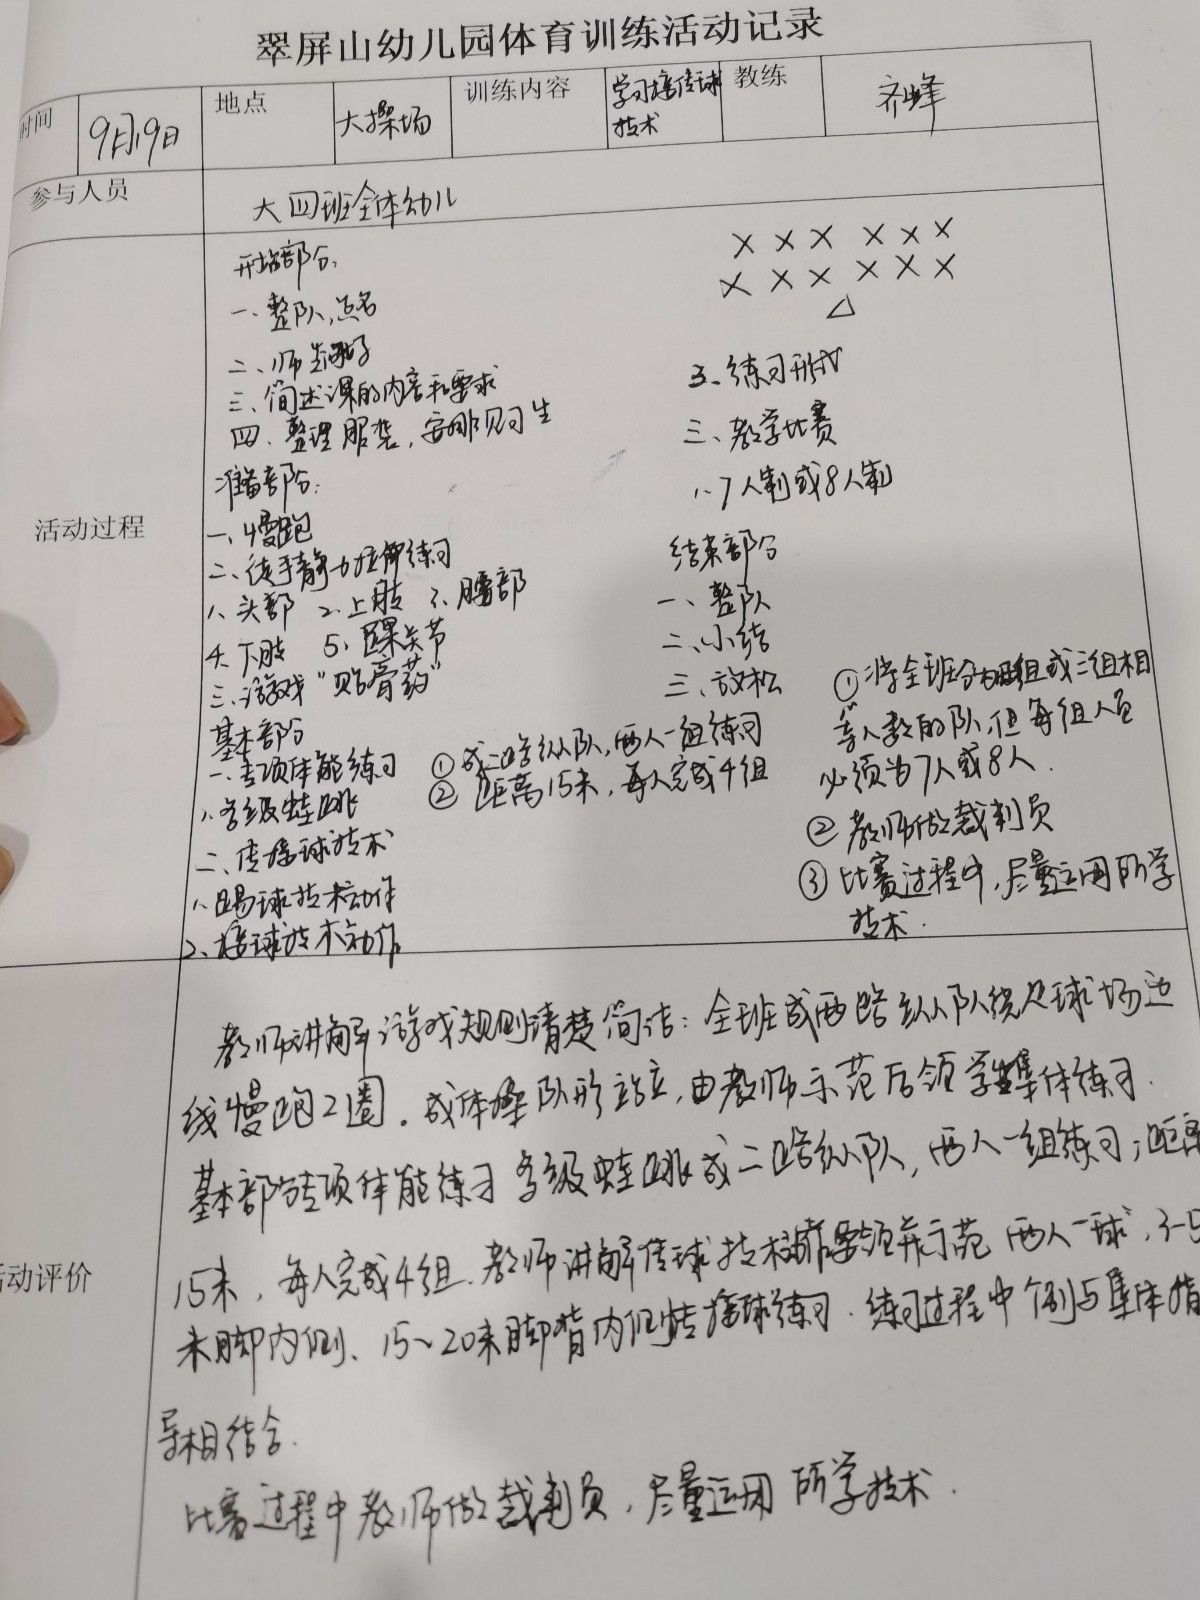 翠屏山幼儿园体育训练活动记录
时间 9月19日 地点 大操场 训练内容 学习接传球技术 教练 齐峰
参与人员 大四班全体幼儿
活动过程
开始部分:
一、整队,点名
二、师生问好
三、简述课的内容和要求
四、整理服装,安排见习生
准备部分:
一、慢跑
二、徒手静力拉伸练习
1、头部 2、上肢 3、腰部
4、下肢 5、踝关节
三、游戏“贴膏药”
基本部分
一、专项体能练习
1、多级蛙跳
二、传接球技术
1、踢球技术动作
2、接球技术动作
① 成二路纵队,两人一组练习
② 距离15米,每人完成4组
× × × × × ×
× × × × × ×
△
3、练习形式
三、教学比赛
1、7人制或8人制
结束部分
一、整队
二、小结
三、放松
① 将全班分为四组或三组相
等人数的队,但每组人员
必须为7人或8人.
② 教师做裁判员
③ 比赛过程中,尽量运用所学
技术.
活动评价
教师讲解游戏规则清楚简洁:全班成两路纵队绕足球场边
线慢跑2圈.成体操队形站立,由教师示范后领学生集体练习.
基本部分专项体能练习多级蛙跳成二路纵队,两人一组练习;距离
15米,每人完成4组.教师讲解传球技术动作要领并示范 两人一球,3-5
米脚内侧、15~20米脚背内侧传接球练习.练习过程中个别与集体指
导相结合.
比赛过程中教师做裁判员,尽量运用所学技术.